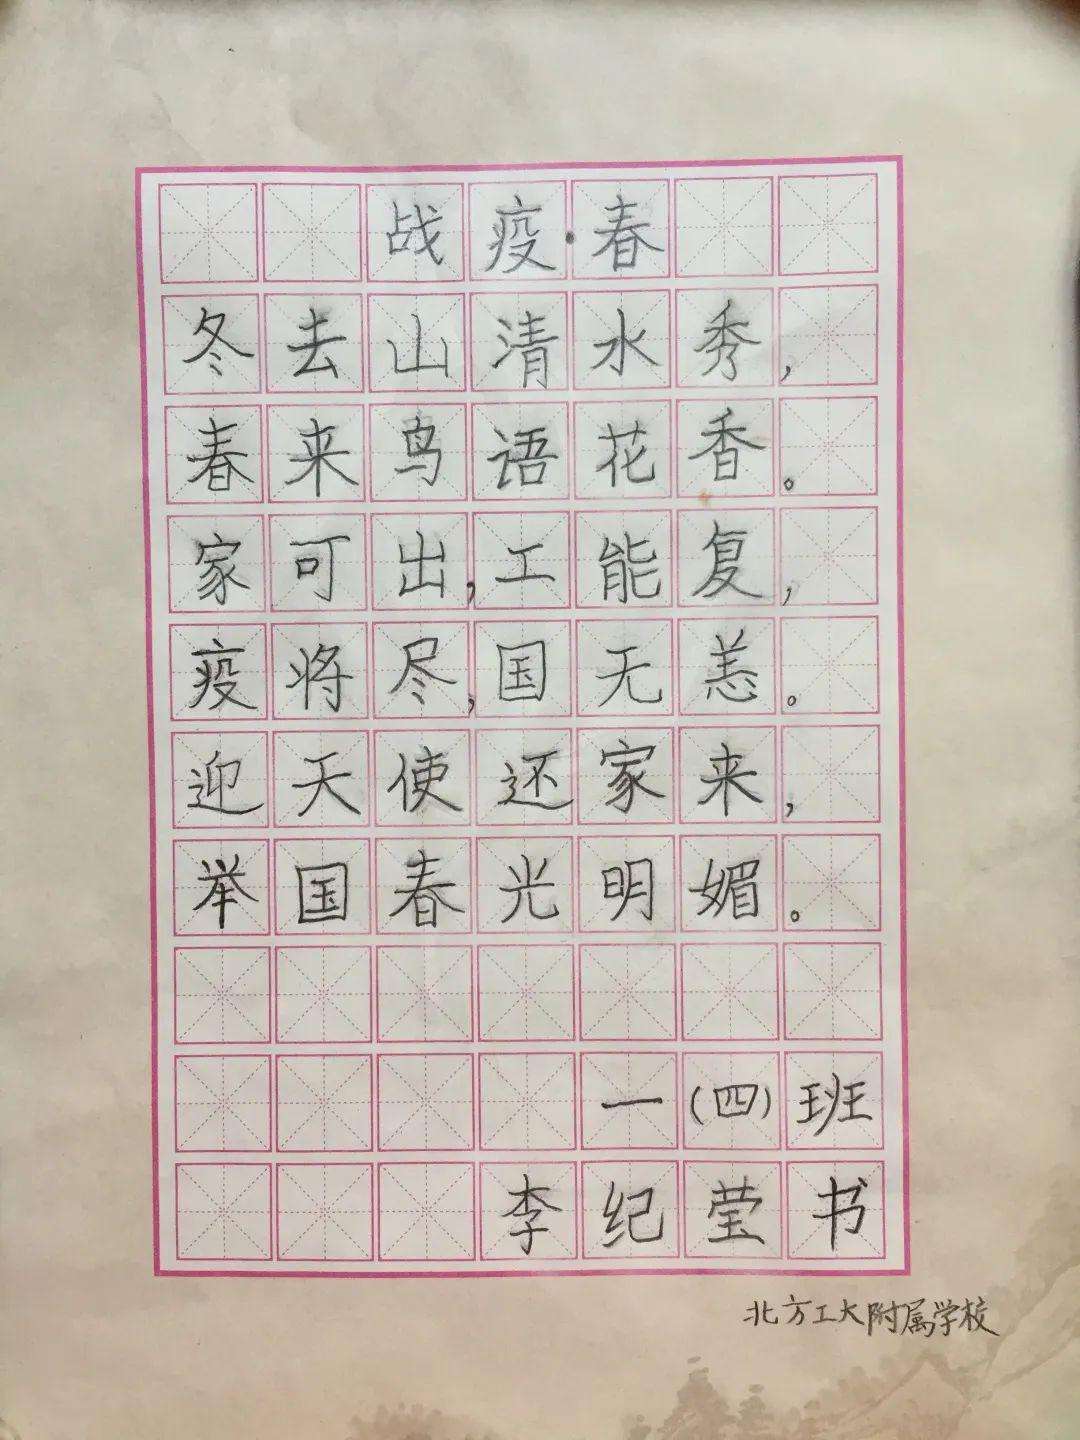 战疫·春
冬去山清水秀，
春来鸟语花香。
家可出，工能复，
疫将尽，国无恙。
迎天使还家来，
举国春光明媚。
一(四)班
李纪莹书
北方工大附属学校